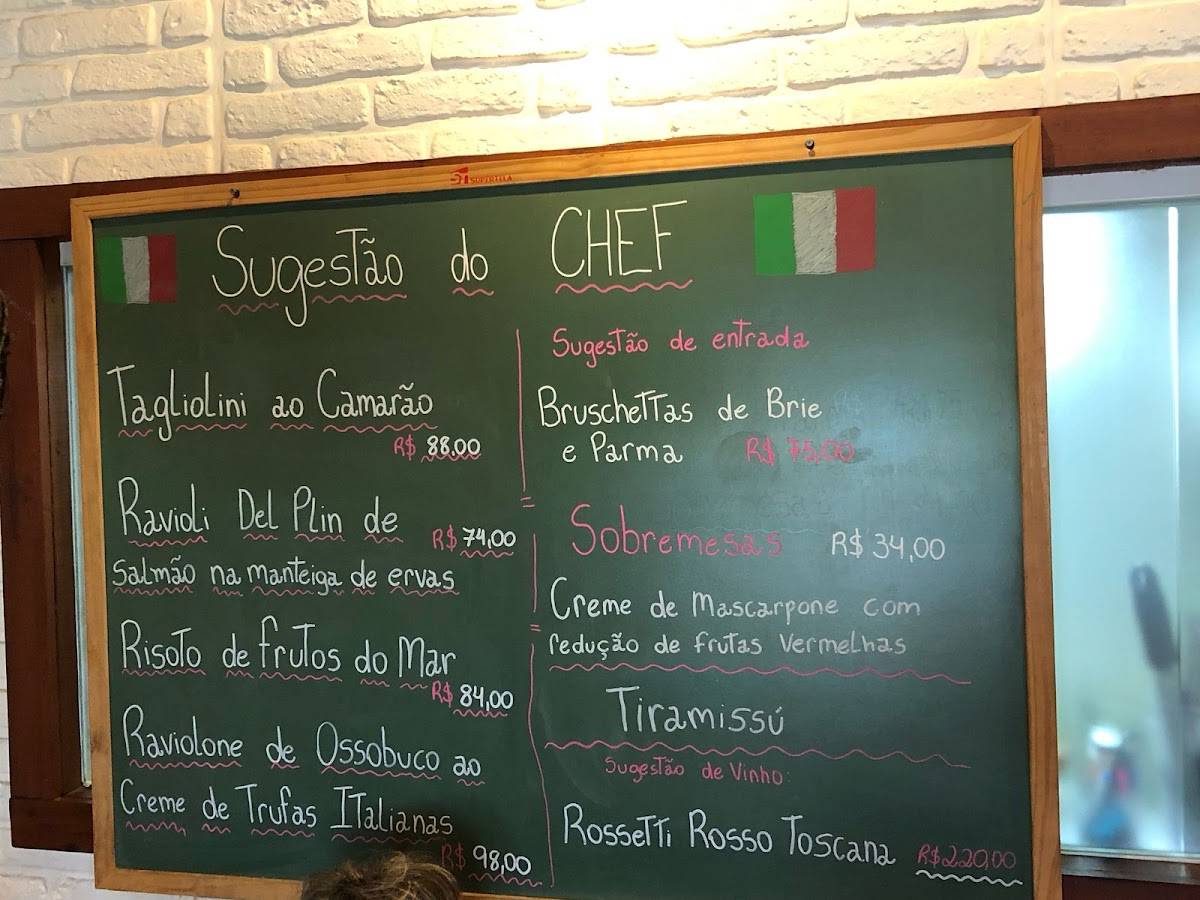 SUPERTELA
Sugestão do CHEF
Tagliolini ao Camarão
R$ 88,00
Ravioli Del Plin de
R$ 74,00
Salmão na manteiga de ervas
Risoto de frutos do Mar
R$ 84,00
Raviolone de Ossobuco ao
Creme de Trufas Italianas
R$ 98,00
Sugestão de entrada
Bruschettas de Brie
e Parma R$ 75,00
Sobremesas R$ 34,00
Creme de Mascarpone com
redução de frutas Vermelhas
Tiramissú
Sugestão de Vinho:
Rossetti Rosso Toscana R$ 220,00